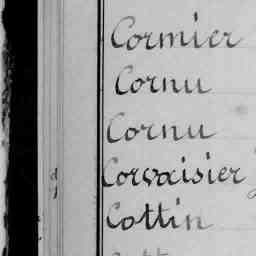 Cormier
Cornu
Cornu
Corvaisier
Cottin